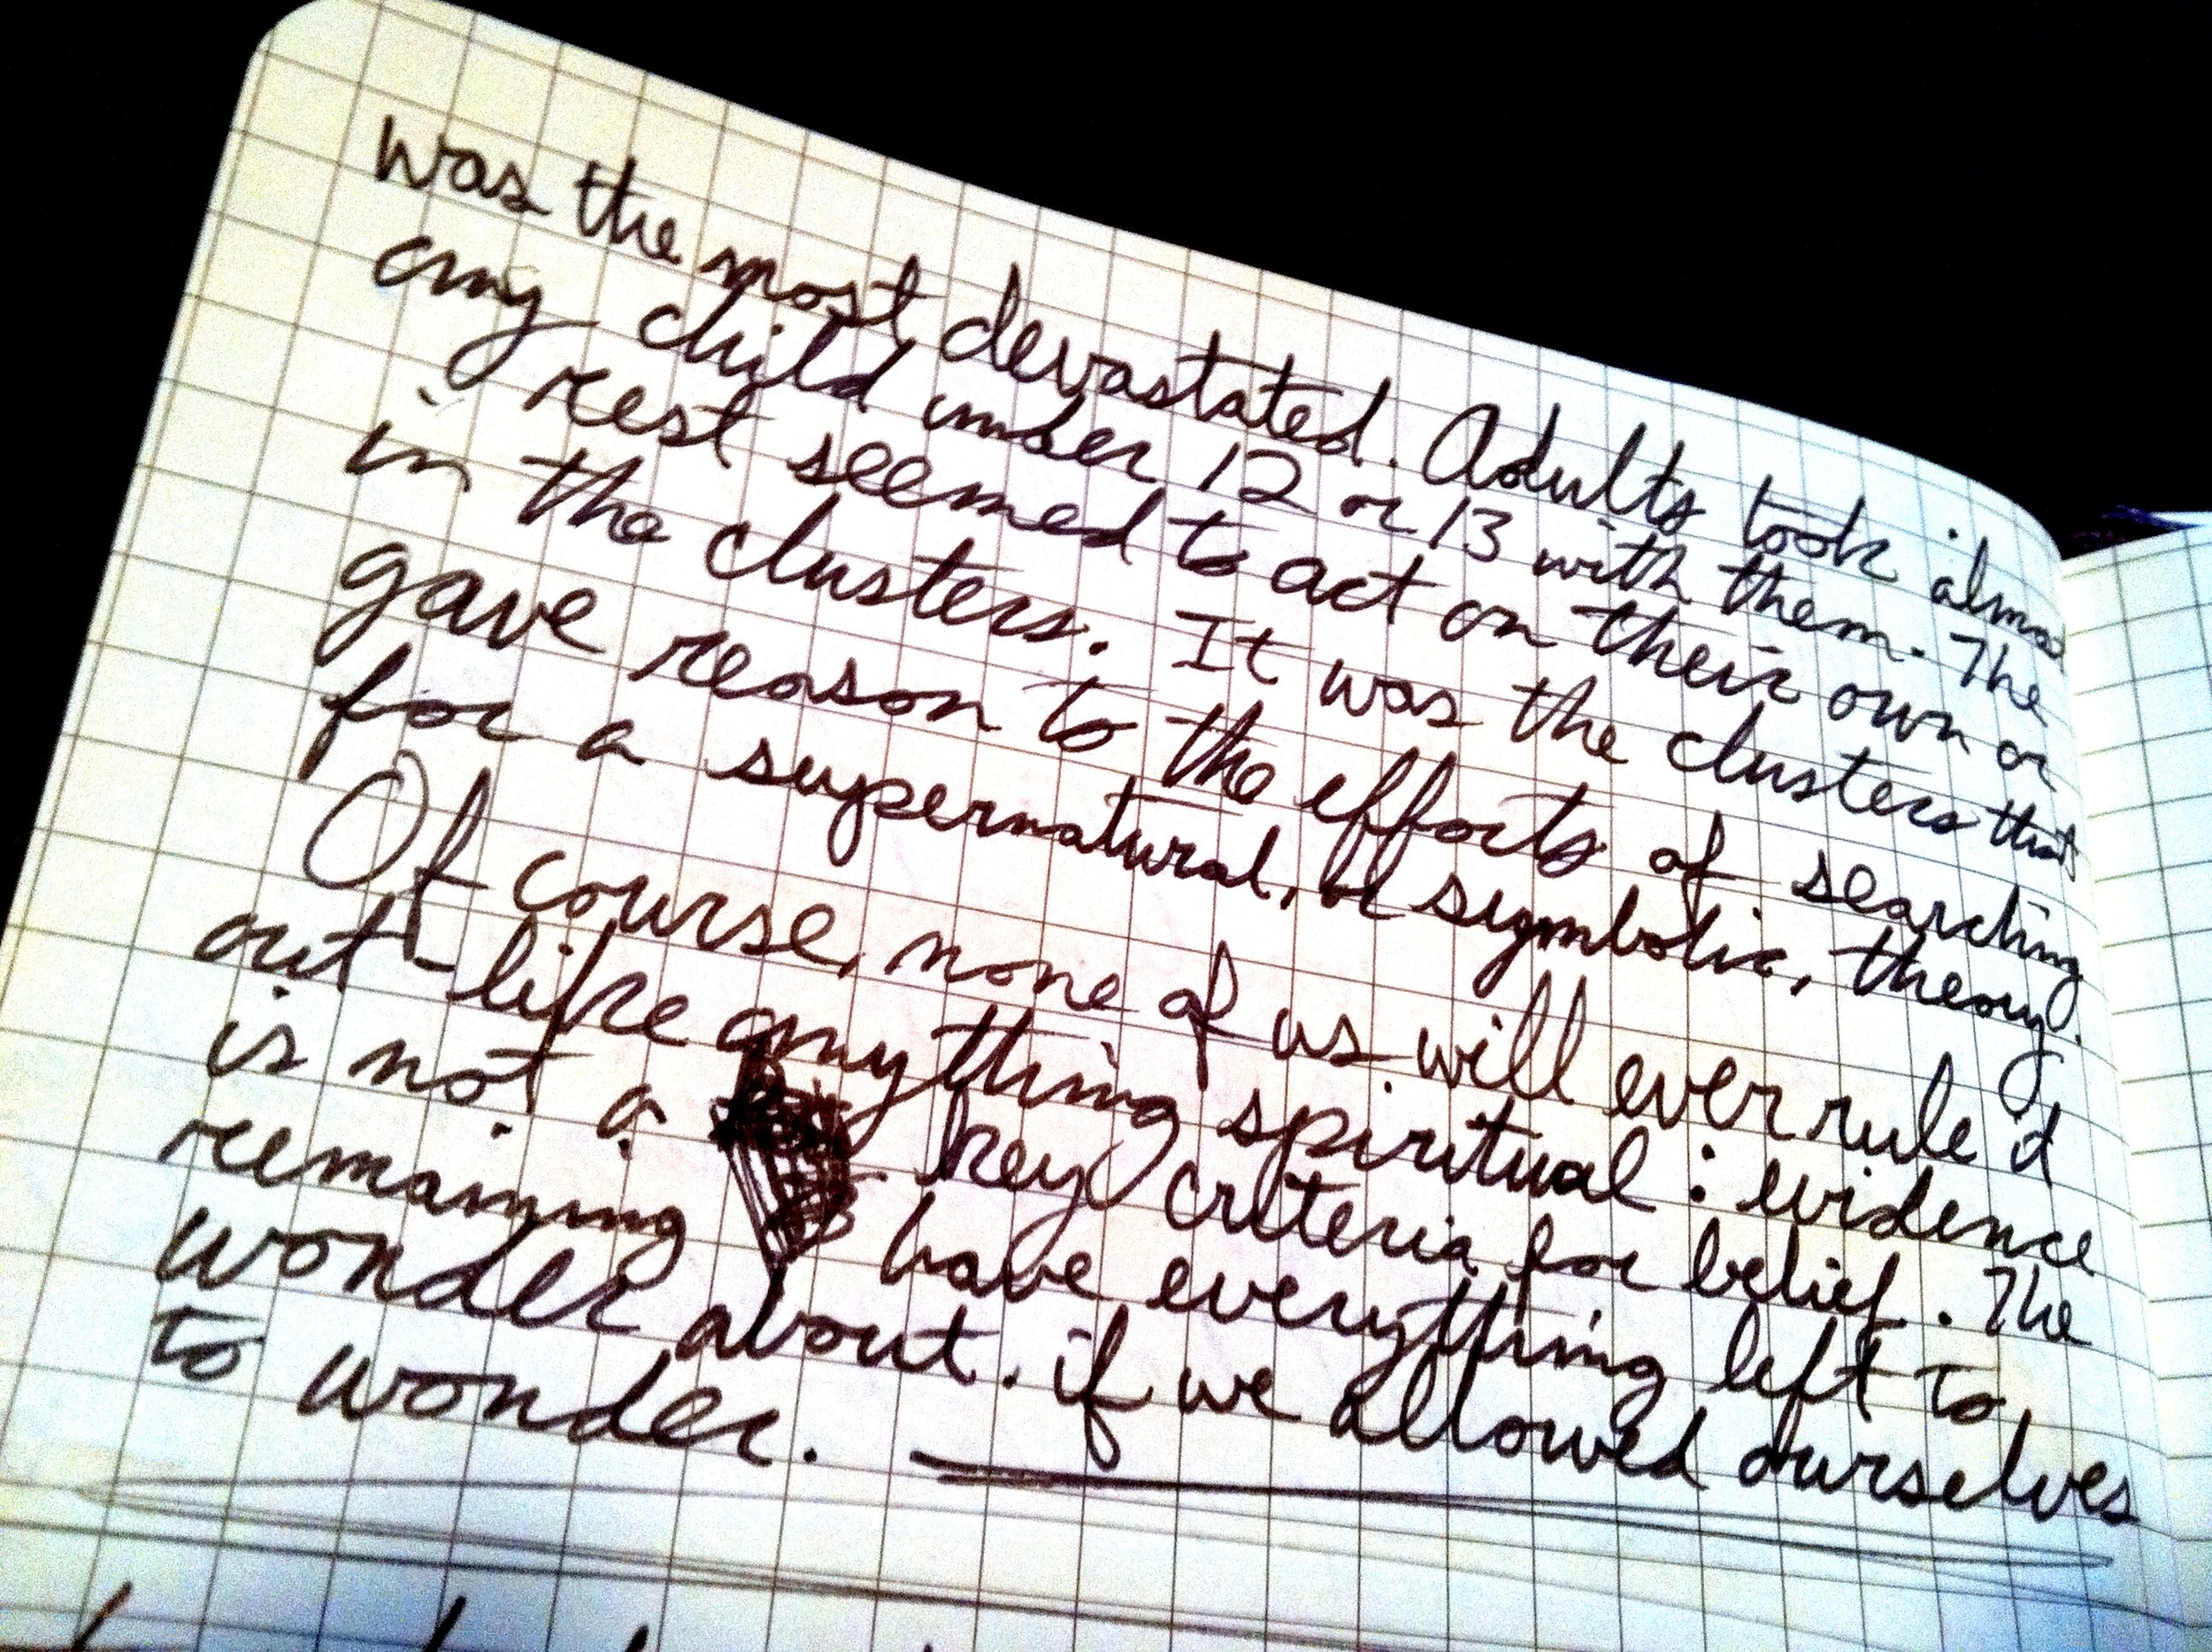 was the most devastated. Adults took almos
any child under 12 or 13 with them. The
rest seemed to act on their own or
in the clusters. It was the clusters that
gave reason to the efforts of searching
for a supernatural, or symbolic, theory.
Of course, none of us will ever rule it
out - like anything spiritual: evidence
is not a key criteria for belief. The
remaining have everything left to
wonder about. if we allowed ourselves
to wonder.